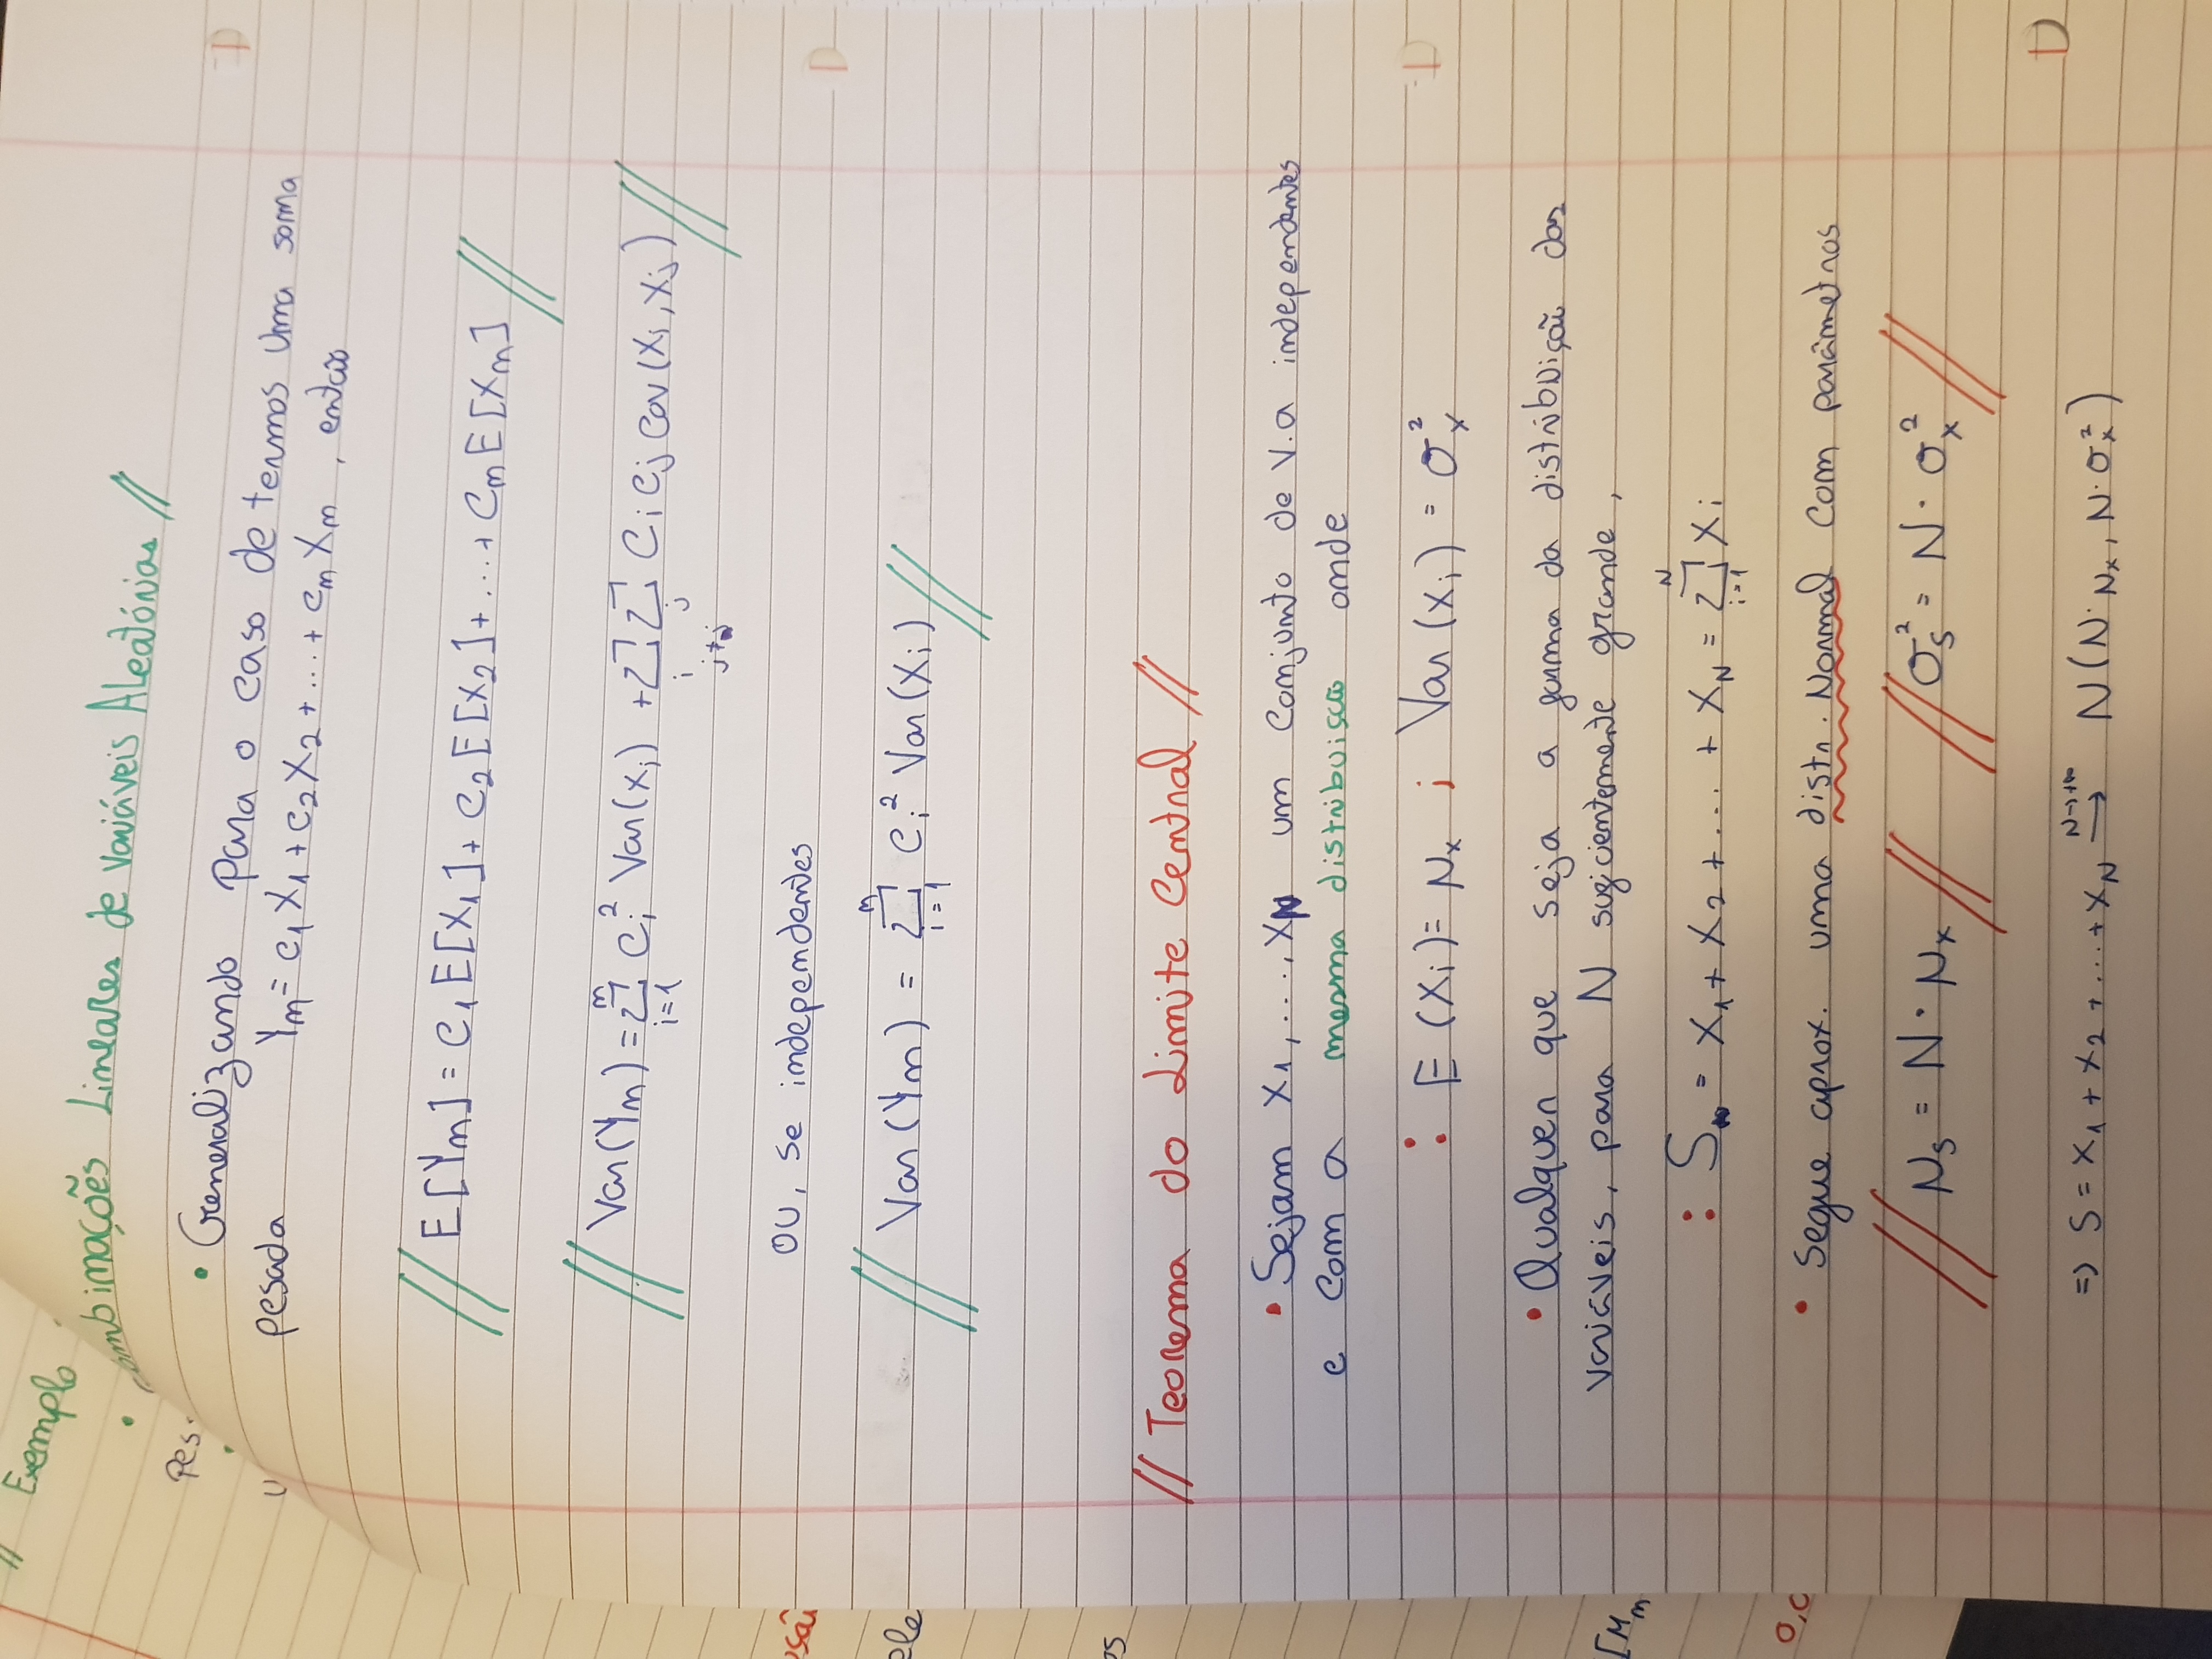 // Exemplo
ombinações Lineares de Variáveis Aleatórias //
Pes
• Generalizando para o caso de termos uma soma
pesada Yn = c1 X1 + c2 X2 + ... + cn Xn , então
// E[Yn] = c1 E[X1] + c2 E[X2] + ... + cn E[Xn] //
// Var(Yn) = Σ_{i=1}^{n} ci² Var(Xi) + Σ_i Σ_j ci cj Cov(Xi, Xj) //
ou, se independentes
// Var(Yn) = Σ_{i=1}^{n} ci² Var(Xi) //
ele
es
// Teorema do Limite Central //
• Sejam X1, ..., XN um conjunto de V.a independentes
e com a mesma distribuiscão onde
: E (Xi) = μx ; Var (Xi) = σx²
• Qualquer que seja a forma da distribuição das
variáveis, para N suficientemente grande,
[Mn
: S = X1 + X2 + ... + XN = Σ_{i=1}^{N} Xi
0,0
• Segue aprox. uma distr. Normal com parâmetros
// μs = N · μx // // σs² = N · σx² //
=> S = X1 + X2 + ... + XN →^{N→+∞} N(N·μx, N·σx²)